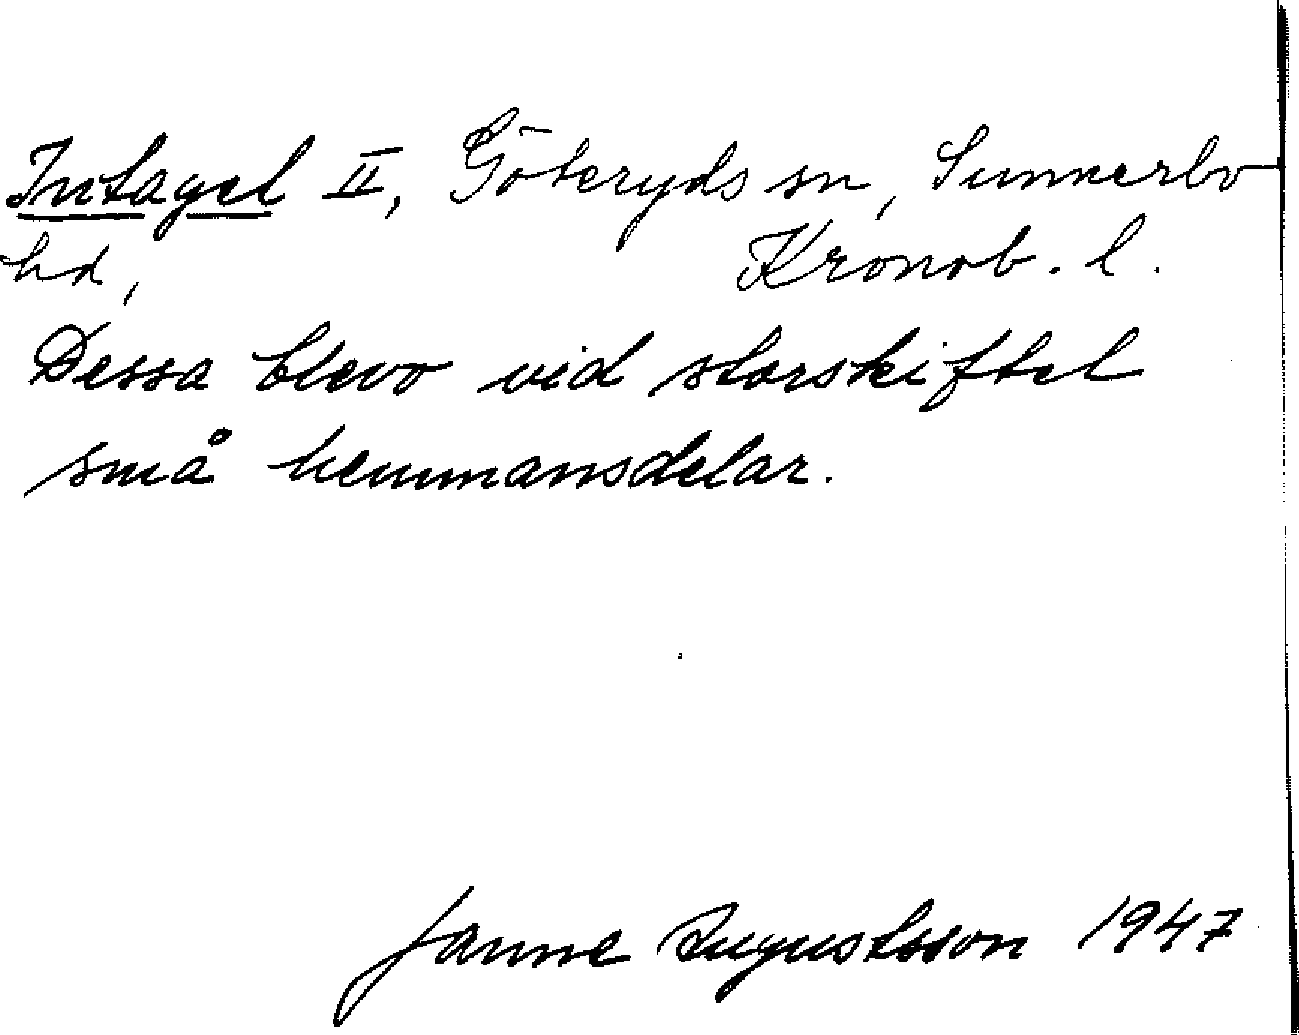 Intaget II, Göteryds sn, Sunnerbo
hd, Kronob. l.
Dessa blevo vid storskiftet
små hemmansdelar.
Janne Augustsson 1947